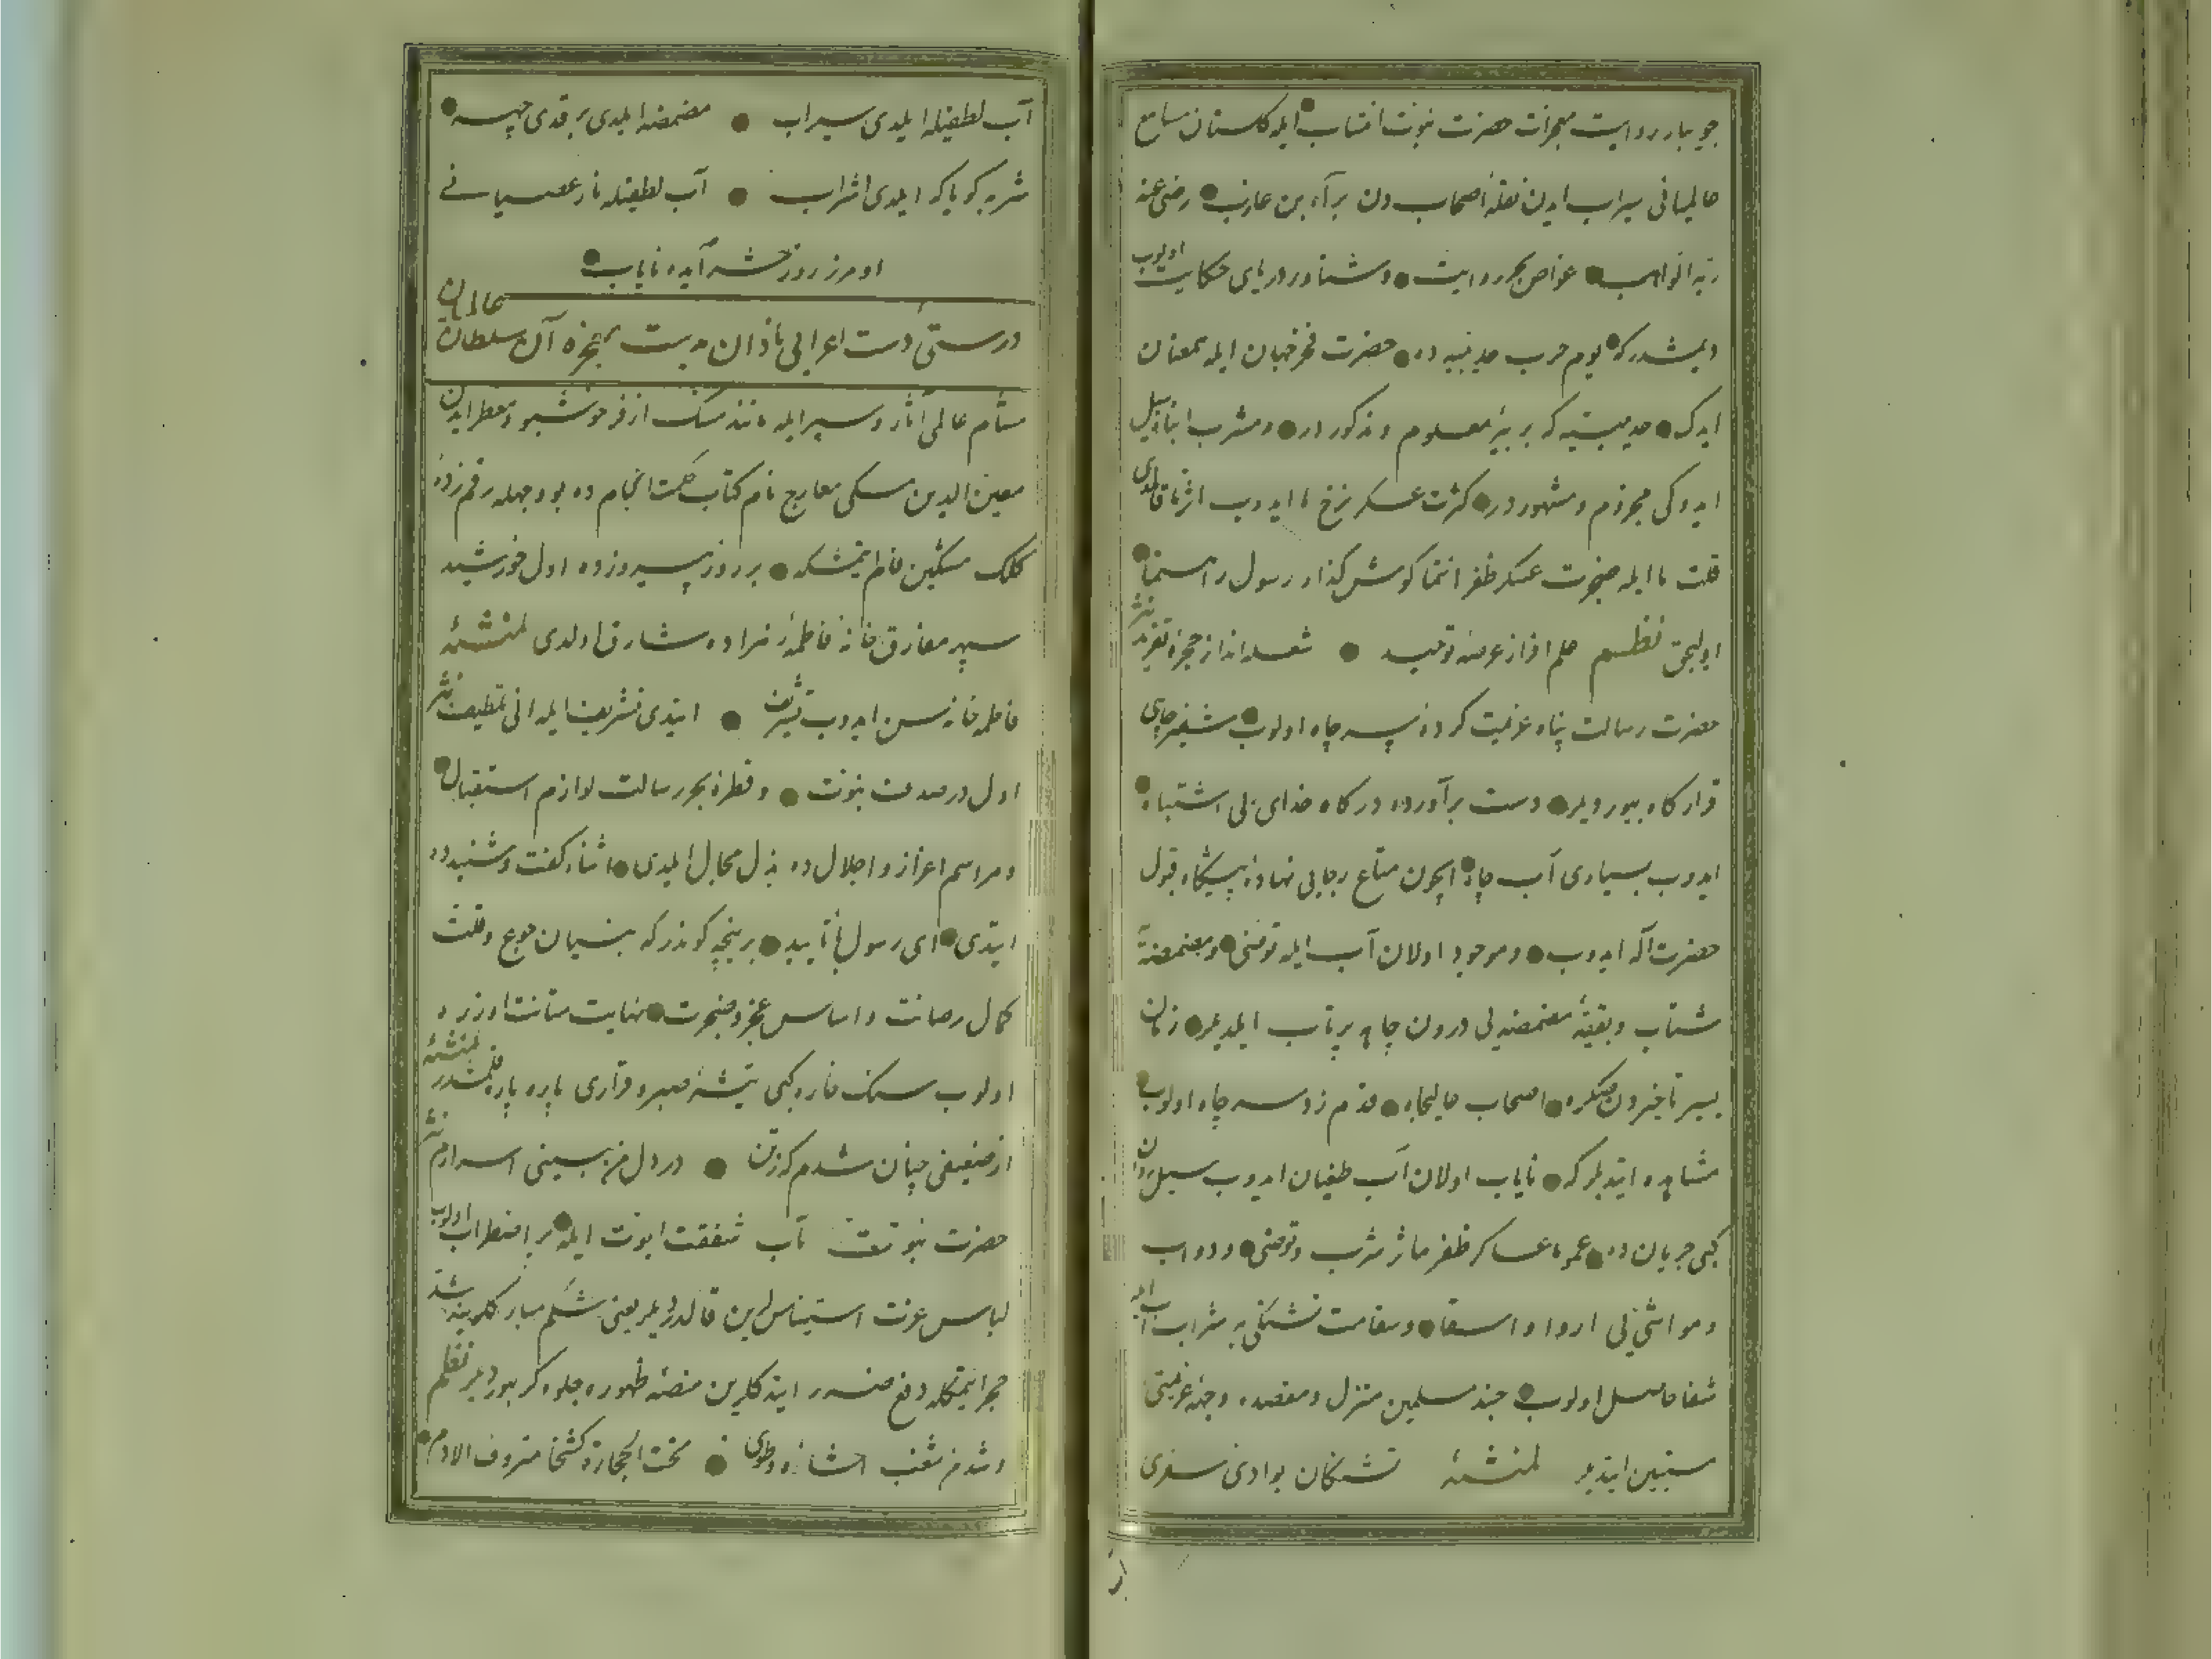 جویبار روایت معجزات حضرت نبوت انتساب ایله کلستان مسامع
عالمیانی سیراب ایدن نقلهٔ اصحاب دن برآء بن عازب رضی عنه
ربه الواهب غواص بحر روایت و شناور دریای حکایت اولوب
دیمشدرکه یوم حرب حدیبیه ده حضرت فخر جهان ایله همعنان
ایدک حدیبیه که بر بئر معلوم و مذکور در و مشرب ابناء سبیل
ایدوکی مجزوم و مشهور در کثرت عسکر نزح ما ایدوب اثر ما قالمدی
قلت ما ایله ضجرت عسکر ظفر انتما کوش کذار رسول راهنما
اولیجق نظم علم افراز عرصهٔ توحید شعله انداز حجرهٔ تفرید نثر
حضرت رسالت پناه عزیمت کرده سر چاه اولوب شفیر چاهی
قرارکاه بیوردیلر دست برآورده درکاه خدای بی اشتباه
ایدوب بسیاری آب چاه ایچون متاع رجایی نهادهٔ پیشکاه قبول
حضرت آله ایدوب و موجود اولان آب ایله توضی و مضمضه‌یه
شتاب و بقیهٔ مضمضه یی درون چاهه پرتاب ایلدیلر زمان
یسیر تأخیردن صکره اصحاب عالیجاه قدم زده سر چاه اولوب
مشاهده ایتدیلر که نایاب اولان آب طغیان ایدوب سیل روان
کبی جریان ده عموما عساکر ظفر مآثر شرب و توضی و دواب
و مواشی یی اروا و اسقا و سقامت تشنکی یه شراب آب ایله
شفا حاصل اولوب جند مسلمین منزل و مقصده وجهه عزیمتی
مستبین ایتدیلر لمنشئه تشنکان بوادی سفری
آب لطفیله ایلدی سیراب مضمضه ایلدی بر قدی چهـه
شربه کویا که ایلدی اشراب آب لطفیله نار عصیانی
اومرز روز حشر آیده نایاب
درستئ دست اعرابی باذان مدیت بمعجزه آن سلطان عالمیان
مشام عالمی آثار و سیر ایله مانند مسک اذفر خوشبو و معطر ایدن
معین الدین مسکی معارج نام کتاب حکمت انجام ده بو وجهله رقمزدهٔ
کلک مشکین فام ایتمشدر که بر روز پیروزده اول خورشید
سپهر مفارق خانهٔ فاطمهٔ زهراده شارق اولدی لمنشئه
فاطمه خانه سن ایدوب تشریف ایتدی تشریف ایله انی تلطیف نثر
اول در صدف نبوت و قطرهٔ بحر رسالت لوازم استقبال
و مراسم اعزاز و اجلال ده بذل مجال ایلدی اثناء کفت و شنیدده
ایتدی ای رسول با تأیید بر نیجه کوندر که بنیان جوع و قلت
کمال رصانت و اساس عجز و ضجرت نهایت متانت اوزره
اولوب سنک خاره کبی تیشهٔ صبر و قراری پاره پاره قلمشدر لمنشئه
از ضعیفی چنان شدم که زتن در دل من ببینی اسرارم نثر
حضرت نبوت مآب شفقت ابوت ایله پر اضطراب اولوب
لباس عزت استیناسلرین قالدردیلر یعنی شکم مبارکلرینه شد
حجر ایتمکله دفع ضرر ایتدکلرین منصهٔ ظهوره جلوه کر بیوردیلر نظم
و شد من سغب احشاءه و طوی تحت الحجارة کشحا مترف الادم